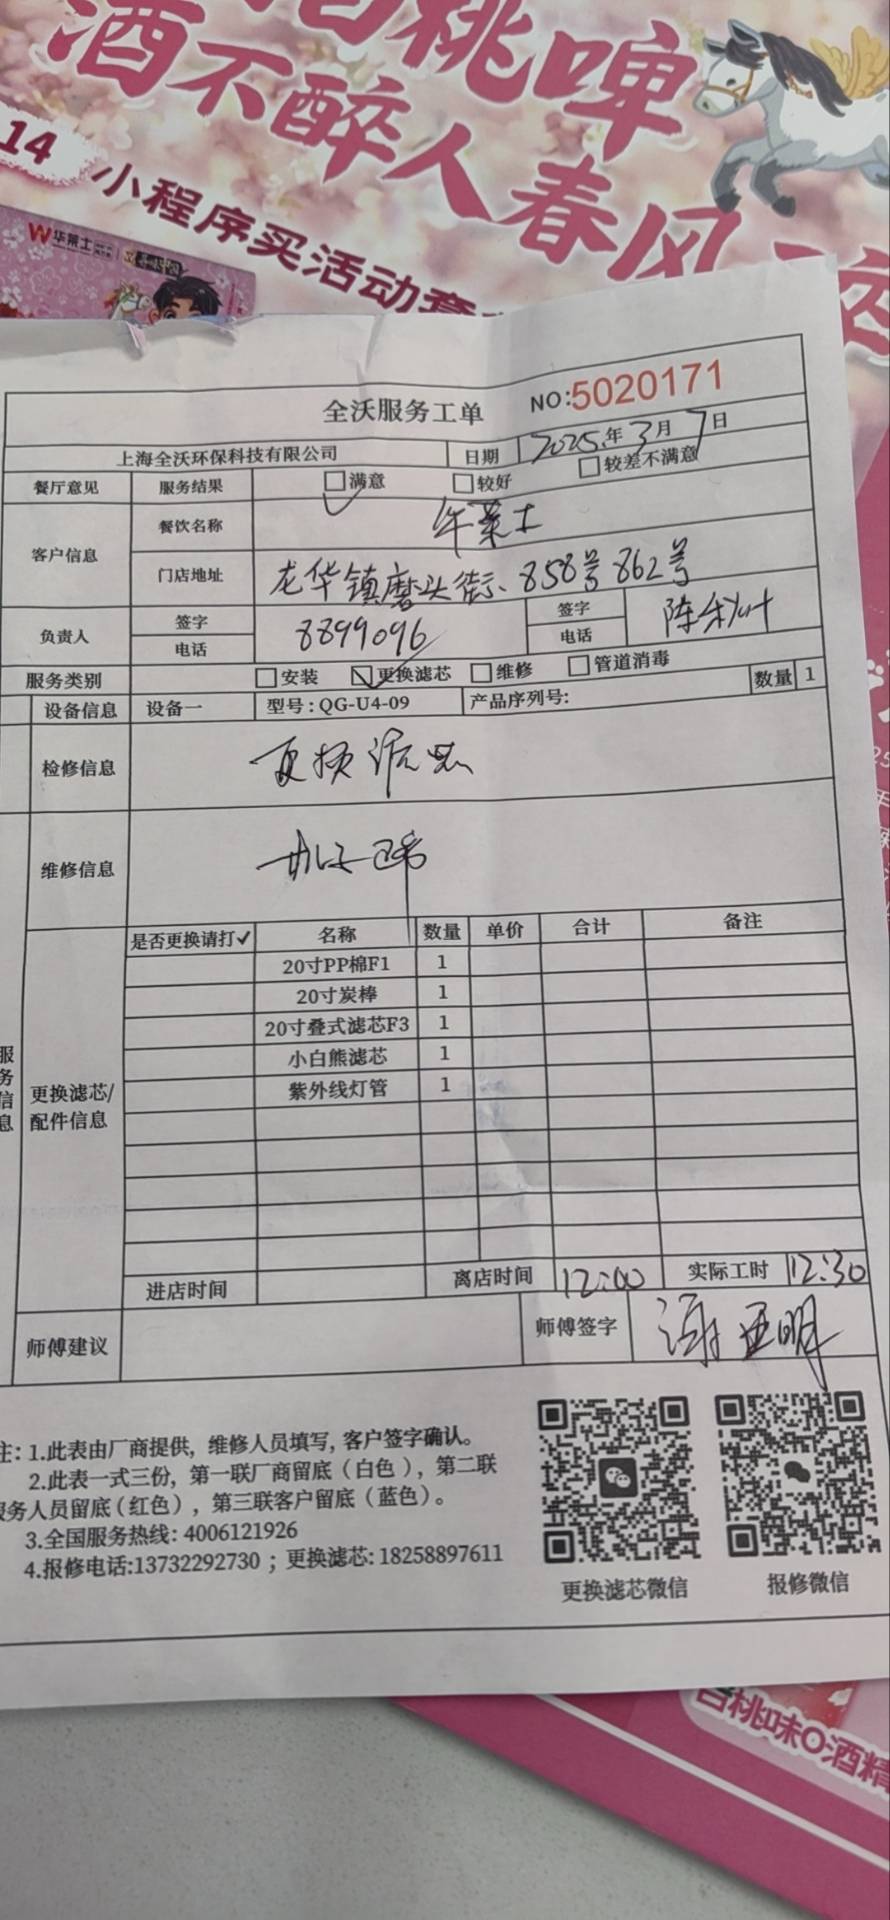 桃啤
酒不醉人春风
14
小程序买活动套
华莱士
全沃服务工单
NO:5020171
上海全沃环保科技有限公司 日期 2025年3月7日
餐厅意见 服务结果 满意 较好 较差不满意
客户信息 餐饮名称 华莱士
门店地址 龙华镇磨头街、858号862号
负责人 签字 电话 8899096 签字 电话 陈秋叶
服务类别 安装 更换滤芯 维修 管道消毒
设备信息 设备一 型号:QG-U4-09 产品序列号: 数量 1
检修信息 更换滤芯
维修信息
是否更换请打✓ 名称 数量 单价 合计 备注
20寸PP棉F1 1
20寸炭棒 1
20寸叠式滤芯F3 1
小白熊滤芯 1
紫外线灯管 1
服务信息
更换滤芯/
配件信息
进店时间 离店时间 12:00 实际工时 12:30
师傅建议 师傅签字 谢亚明
注: 1.此表由厂商提供, 维修人员填写, 客户签字确认。
2.此表一式三份, 第一联厂商留底(白色), 第二联
服务人员留底(红色), 第三联客户留底(蓝色)。
3.全国服务热线: 4006121926
4.报修电话:13732292730 ; 更换滤芯: 18258897611
更换滤芯微信 报修微信
桃味0酒精